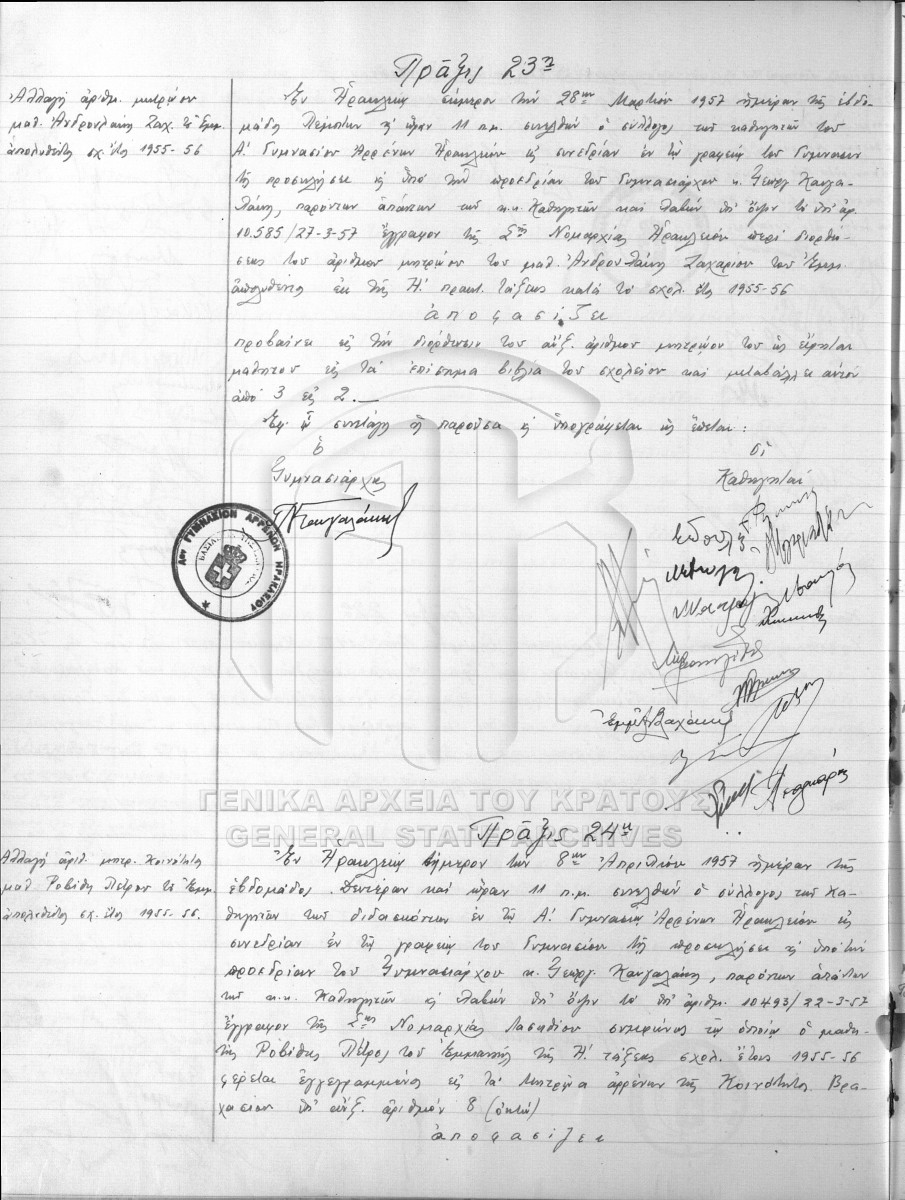 Πρᾶξις 23η
Ἀλλαγή ἀριθμ. μητρώου
μαθ. Ἀνδρουλάκη Ζαχ. τοῦ Ἐμμ.
ἀπολυθέντος σχ. ἔτος 1955-56
Ἐν Ἡρακλείῳ σήμερον τήν 28ην Μαρτίου 1957 ἡμέραν τῆς ἑβδο-
μάδος Πέμπτην καί ὥραν 11 π.μ. συνελθών ὁ σύλλογος τῶν καθηγητῶν τοῦ
Α΄ Γυμνασίου Ἀρρένων Ἡρακλείου εἰς συνεδρίαν ἐν τῷ γραφείῳ τοῦ Γυμνασίου
τῇ προσκλήσει καί ὑπό τήν προεδρίαν τοῦ Γυμνασιάρχου κ. Γεωργ. Καυγα-
λάκη, παρόντων ἁπάντων τῶν κ.κ. Καθηγητῶν καί λαβών ὑπ' ὄψιν τό ὑπ' ἀρ.
10.585/27-3-57 ἔγγραφον τῆς Σης Νομαρχίας Ἡρακλείου περί διορθώ-
σεως τοῦ ἀριθμοῦ μητρώου τοῦ μαθ. Ἀνδρουλάκη Ζαχαρίου τοῦ Ἐμμ.
ἀπολυθέντος ἐκ τῆς Η΄ πρακτ. τάξεως κατά τό σχολ. ἔτος 1955-56
ἀποφασίζει
προβαίνει εἰς τήν διόρθωσιν τοῦ αὔξ. ἀριθμοῦ μητρώου τοῦ ὡς εἴρηται
μαθητοῦ εἰς τά ἐπίσημα βιβλία τοῦ σχολείου καί μεταβάλλει αὐτόν
ἀπό 3 εἰς 2.—
Ἐφ' ᾧ συνετάγη ἡ παροῦσα καί ὑπογράφεται ὡς ἕπεται:
ὁ
Γυμνασιάρχης
οἱ
Καθηγηταί
Αον ΓΥΜΝΑΣΙΟΝ ΑΡΡΕΝΩΝ ΗΡΑΚΛΕΙΟΥ
ΓΕΝΙΚΑ ΑΡΧΕΙΑ ΤΟΥ ΚΡΑΤΟΥΣ
GENERAL STATE ARCHIVES
Πρᾶξις 24η
Ἀλλαγή ἀριθ. μητρ. Κοινότητος
μαθ. Ροβίθη Πέτρου τοῦ Ἐμμ.
ἀπολυθέντος σχ. ἔτος 1955-56.
Ἐν Ἡρακλείῳ σήμερον τήν 8ην Ἀπριλίου 1957 ἡμέραν τῆς
ἑβδομάδος Δευτέραν καί ὥραν 11 π.μ. συνελθών ὁ σύλλογος τῶν κα-
θηγητῶν τῶν διδασκόντων ἐν τῷ Α΄ Γυμνασίῳ Ἀρρένων Ἡρακλείου εἰς
συνεδρίαν ἐν τῷ γραφείῳ τοῦ Γυμνασίου τῇ προσκλήσει καί ὑπό τήν
προεδρίαν τοῦ Γυμνασιάρχου κ. Γεωργ. Καυγαλάκη, παρόντων ἁπάντων
τῶν κ.κ. Καθηγητῶν καί λαβών ὑπ' ὄψιν τό ὑπ' ἀριθμ. 10493/22-3-57
ἔγγραφον τῆς Σης Νομαρχίας Λασηθίου συμφώνως τῷ ὁποίῳ ὁ μαθη-
τής Ροβίθης Πέτρος τοῦ Ἐμμανουήλ τῆς Η΄ τάξεως σχολ. ἔτους 1955-56
φέρεται ἐγγεγραμμένος εἰς τά Μητρῷα ἀρρένων τῆς Κοινότητος Βρα-
χασίου ὑπ' αὔξ. ἀριθμόν 8 (ὀκτώ)
ἀποφασίζει